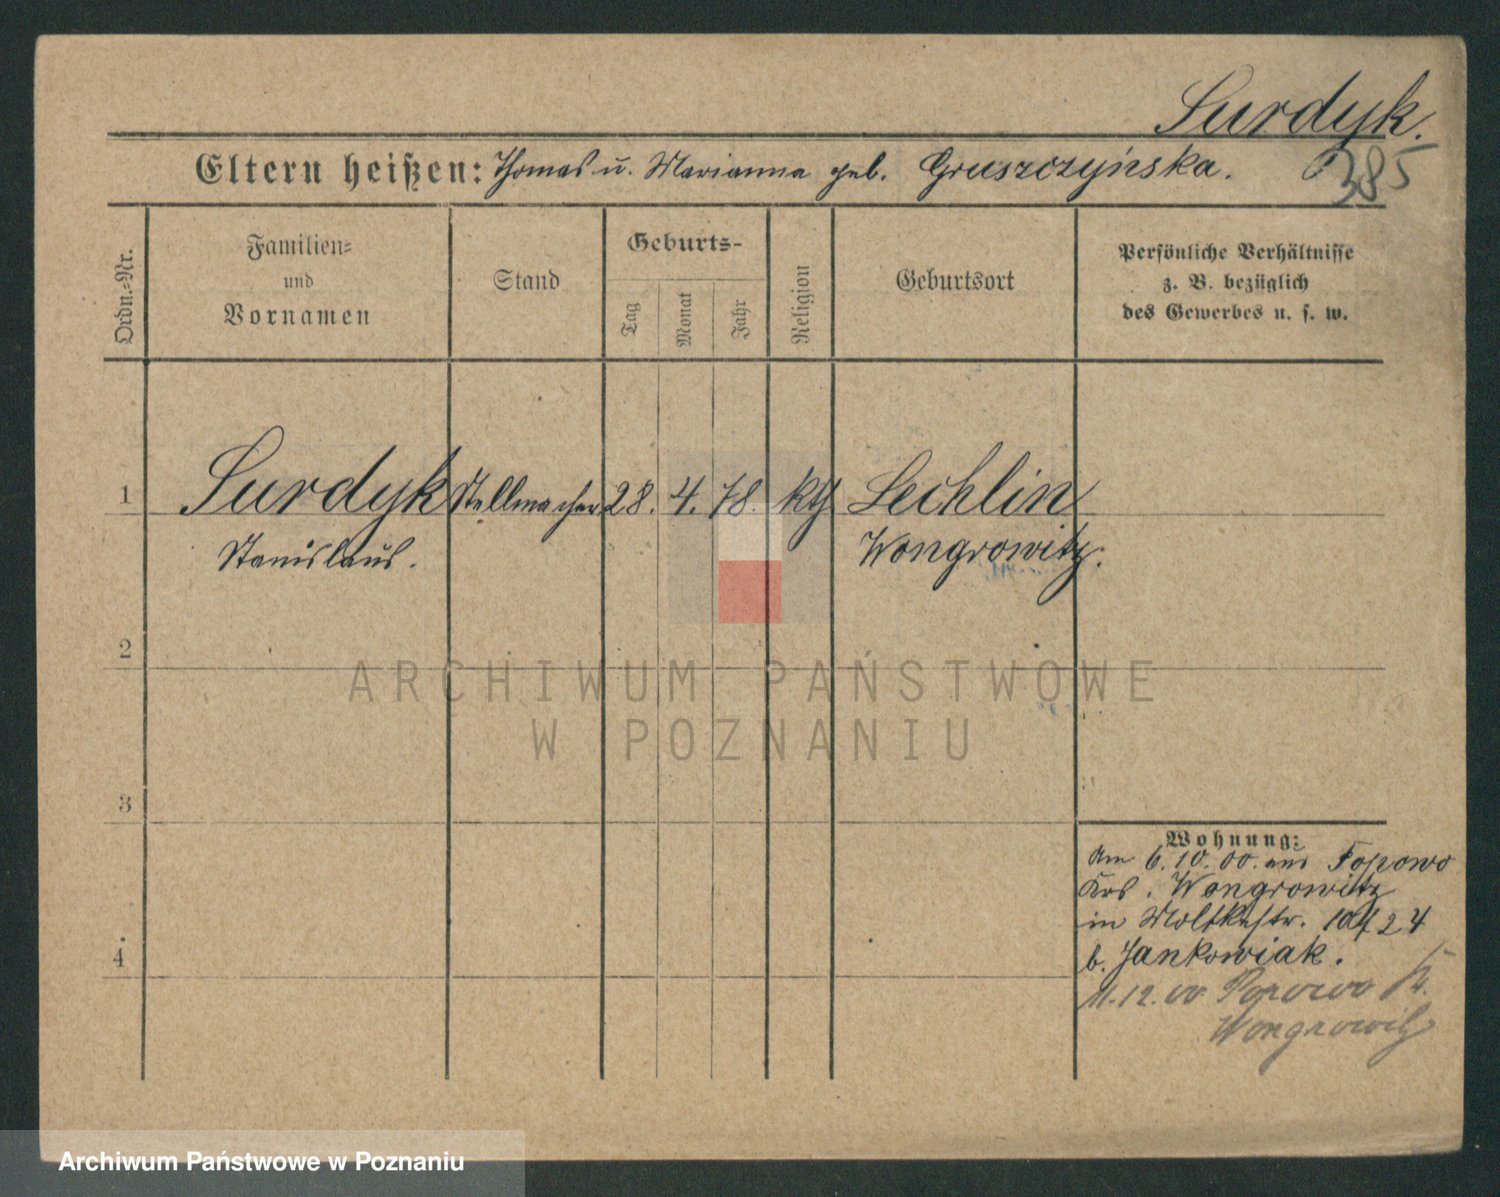 Surdyk.
Eltern heißen: Thomas u. Marianna geb. Gruszczyńska. 385
Ordn.-Nr.
Familien-
und
Vornamen
Stand
Geburts-
Tag
Monat
Jahr
Religion
Geburtsort
Persönliche Verhältnisse
z. B. bezüglich
des Gewerbes u. s. w.
1 Surdyk Stellmacher 28. 4. 78. kth Lechlin
Stanislaus. Wongrowitz.
2
3
4
Wohnung:
Am 6.10.00. aus Popowo
Krs. Wongrowitz
in Moltkestr.
b. Jankowiak.
11.12.00 Popowo K.
Wongrowitz
ARCHIWUM PAŃSTWOWE
W POZNANIU
Archiwum Państwowe w Poznaniu